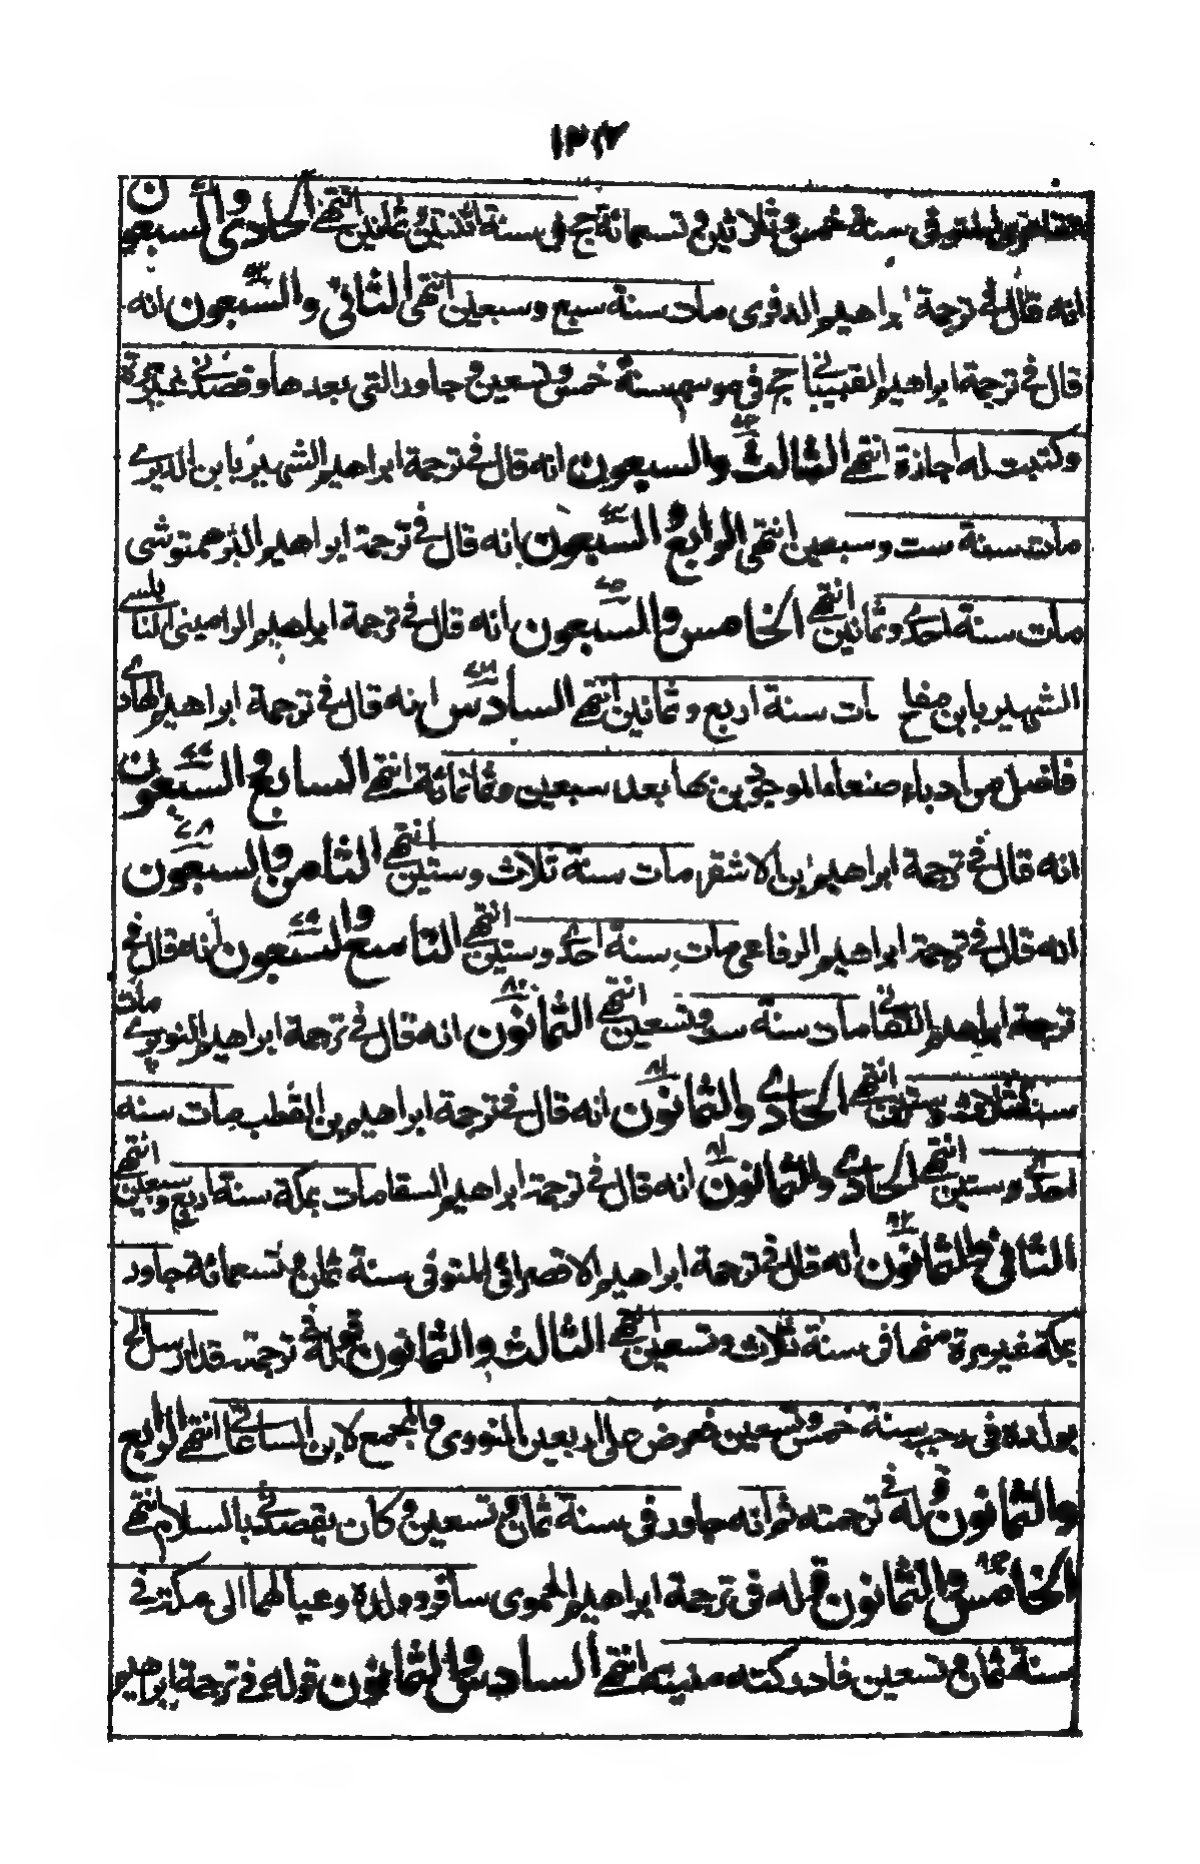 ١٣١٧
المتوفى سنة خمس وثلاثين وتسعمائة حج في سنة اثنتين وثمانين انتهى الحادي والسبعون
انه قال في ترجمة ابراهيم الدفوى مات سنة سبع وسبعين انتهى الثاني والسبعون انه
قال في ترجمة ابراهيم القبيباتي حج في موسم سنة خمس وتسعين وجاور التي بعدها وقصدني غير مرة
وكتبت له اجازة انتهى الثالث والسبعون انه قال في ترجمة ابراهيم الشهير بابن الديري
مات سنة ست وسبعين انتهى الرابع والسبعون انه قال في ترجمة ابراهيم الترهمتوشى
مات سنة احدى وثمانين انتهى الخامس والسبعون انه قال في ترجمة ابراهيم الراميني النابلسي
الشهير بابن مفلح ات سنة اربع وثمانين انتهى السادس انه قال في ترجمة ابراهيم الهادي
فاضل من ادباء صنعاء الموجودين بها بعد سبعين وثمانمائة انتهى السابع والسبعون
انه قال في ترجمة ابراهيم بن الاشقر مات سنة ثلاث وستين انتهى الثامن والسبعون
انه قال في ترجمة ابراهيم الرفاعي مات سنة احدى وستين انتهى التاسع والسبعون انه قال في
ترجمة ابراهيم مات سنة وتسعين انتهى الثمانون انه قال في ترجمة ابراهيم النويري مات
سنة ثلاث وستين انتهى الحادي والثمانون انه قال في ترجمة ابراهيم بن القطب مات سنه
احدى وستين انتهى الحادي والثمانون انه قال في ترجمة ابراهيم السقا مات بمكة سنة اربع وسبعين انتهى
الثاني والثمانون انه قال في ترجمة ابراهيم الاقصرائي المتوفى سنة ثمان وتسعمائة جاور
بمكة غير مرة منها في سنة ثلاث وتسعين انتهى الثالث والثمانون قوله في ترجمته قد ارسل الي
بولده في رجب سنة خمس وتسعين فعرض علي اربعين النووي والمجمع لابن الساعاتي انتهى الرابع
والثمانون قوله في ترجمته ثم انه جاور في سنة ثمان وتسعين وكان يقصدني بالسلام انتهى
الخامس والثمانون قوله في ترجمة ابراهيم الحموى سافر وولده وعيالهما الى مكة في
سنة ثمان وتسعين فادركته منيته انتهى السادس والثمانون قوله في ترجمة ابراهيم